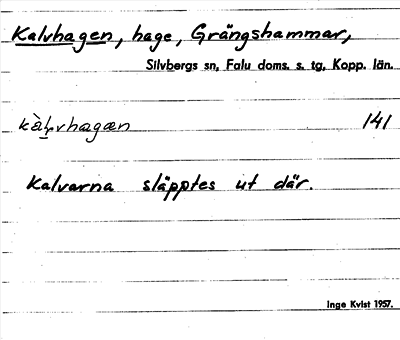 Kalvhagen, hage, Grängshammar,
Silvbergs sn, Falu doms. s. tg, Kopp. län.
141
Kalvarna släpptes ut där.
Inge Kvist 1957.